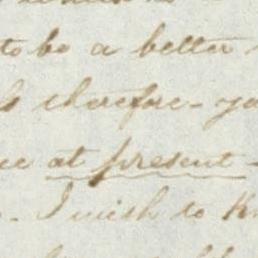 to be a better
therefore - yo
at present -
I wish to kn